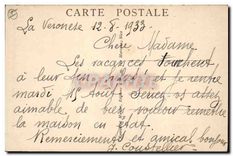 CARTE POSTALE
La Veronese 12-8-1933
Chère Madame
Les vacances touchent
à leur fin et je rentre
mardi 15 Août. Serez-vs assez
aimable de bien vouloir remettre
la maison en état.
Remerciements et amical bonjour
J. Coustellier